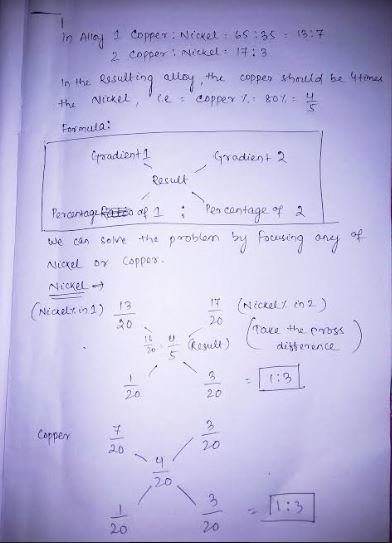 In Alloy 1 Copper : Nickel = 65 : 35 = 13:7
2 Copper : Nickel = 17 : 3
In the Resulting alloy, the copper should be 4 times
the Nickel, ie = copper % = 80% = 4/5
Formula:
Gradient 1 Gradient 2
Result
Percentage of 1 : Percentage of 2
We can solve the problem by focusing any of
Nickel or Copper.
Nickel →
(Nickel % in 1) 13/20 17/20 (Nickel % in 2)
16/20 = 4/5 (Result) (Take the cross difference)
1/20 3/20 = 1:3
Copper 7/20 3/20
4/20
1/20 3/20 = 1:3